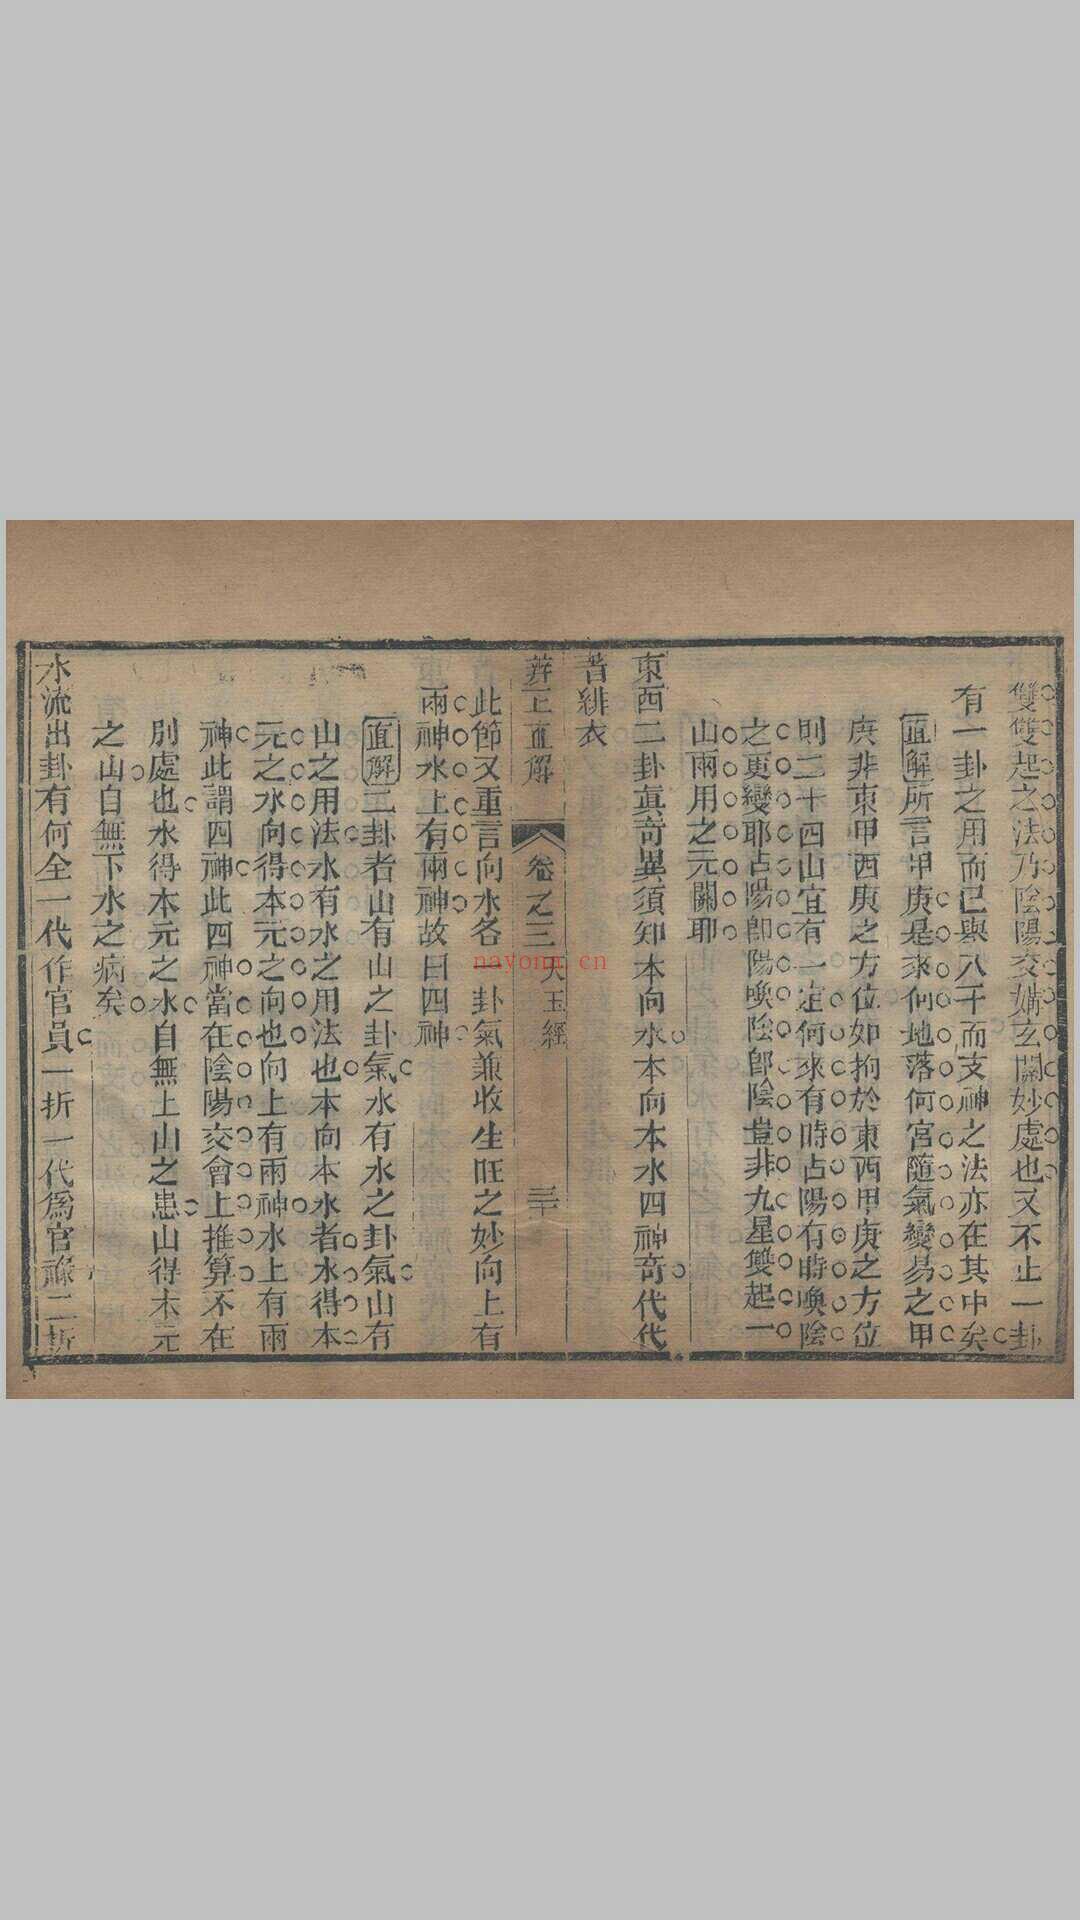 雙雙起之法乃陰陽交媾玄關妙處也又不止一卦
有一卦之用而已與八干四支神之法亦在其中矣
直解所言甲庚是來何地落何宮隨氣變易之甲
庚非東甲西庚之方位如拘於東西甲庚之方位
則二十四山宜有一定何來有時占陽有時喚陰
之更變耶占陽卽陽喚陰卽陰豈非九星雙起一
山兩用之元關耶
東西二卦眞奇異須知本向水本向本水四神奇代代
著緋衣
辨正直解
卷之三
天玉經
三十
此節又重言向水各一卦氣兼收生旺之妙向上有
兩神水上有兩神故曰四神
直解二卦者山有山之卦氣水有水之卦氣山有
山之用法水有水之用法也本向本水者水得本
元之水向得本元之向也向上有兩神水上有兩
神此謂四神此四神當在陰陽交會上推算不在
別處也水得本元之水自無上山之患山得本元
之山自無下水之病矣
水流出卦有何全一代作官員一折一代爲官祿二折
nayona.cn